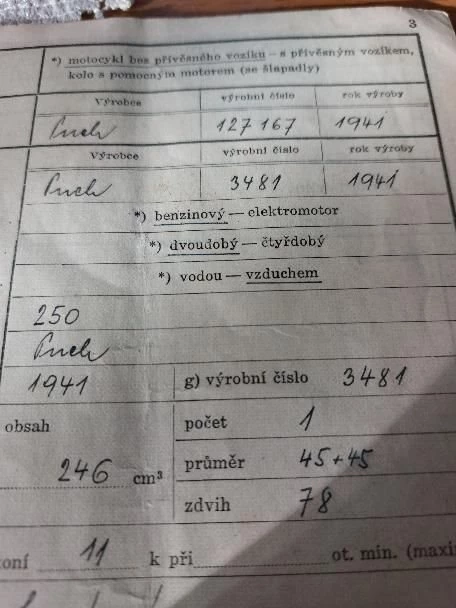 3
*) motocykl bez přívěsného vozíku — s přívěsným vozíkem,
kolo s pomocným motorem (se šlapadly)
Výrobce výrobní číslo rok výroby
Puch 127 167 1941
Výrobce výrobní číslo rok výroby
Puch 3481 1941
*) benzinový — elektromotor
*) dvoudobý — čtyřdobý
*) vodou — vzduchem
250
Puch
1941 g) výrobní číslo 3481
obsah počet 1
246 cm³ průměr 45+45
zdvih 78
11 k při ot. min.